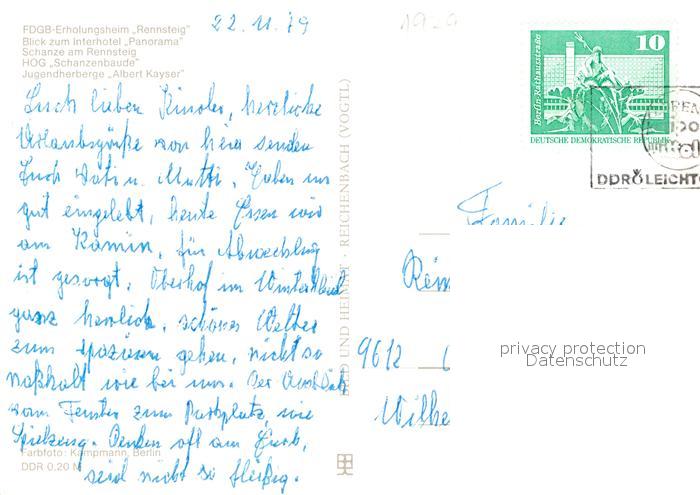 FDGB-Erholungsheim „Rennsteig"
Blick zum Interhotel „Panorama"
Schanze am Rennsteig
HOG „Schanzenbaude"
Jugendherberge „Albert Kayser"
22.11.79
Euch lieben Kinder, herzliche
Urlaubsgrüße von hier senden
Euch Vati u. Mutti. Haben uns
gut eingelebt, heute Essen wir
am Kamin, für Abwechslung
ist gesorgt. Oberhof im Winterkleid
ganz herrlich, schönes Wetter
zum spazieren gehen, nicht so
naßkalt wie bei uns. Der Ausblick
vom Fenster zum Parkplatz, wie
Spielzeug. Denken oft an Euch,
seid nicht so fleißig.
Farbfoto: Kampmann, Berlin
DDR 0,20 M
BILD UND HEIMAT · REICHENBACH (VOGTL)
Berlin, Rathausstraße
10
DEUTSCHE DEMOKRATISCHE REPUBLIK
DDR
Familie
9612
privacy protection
Datenschutz